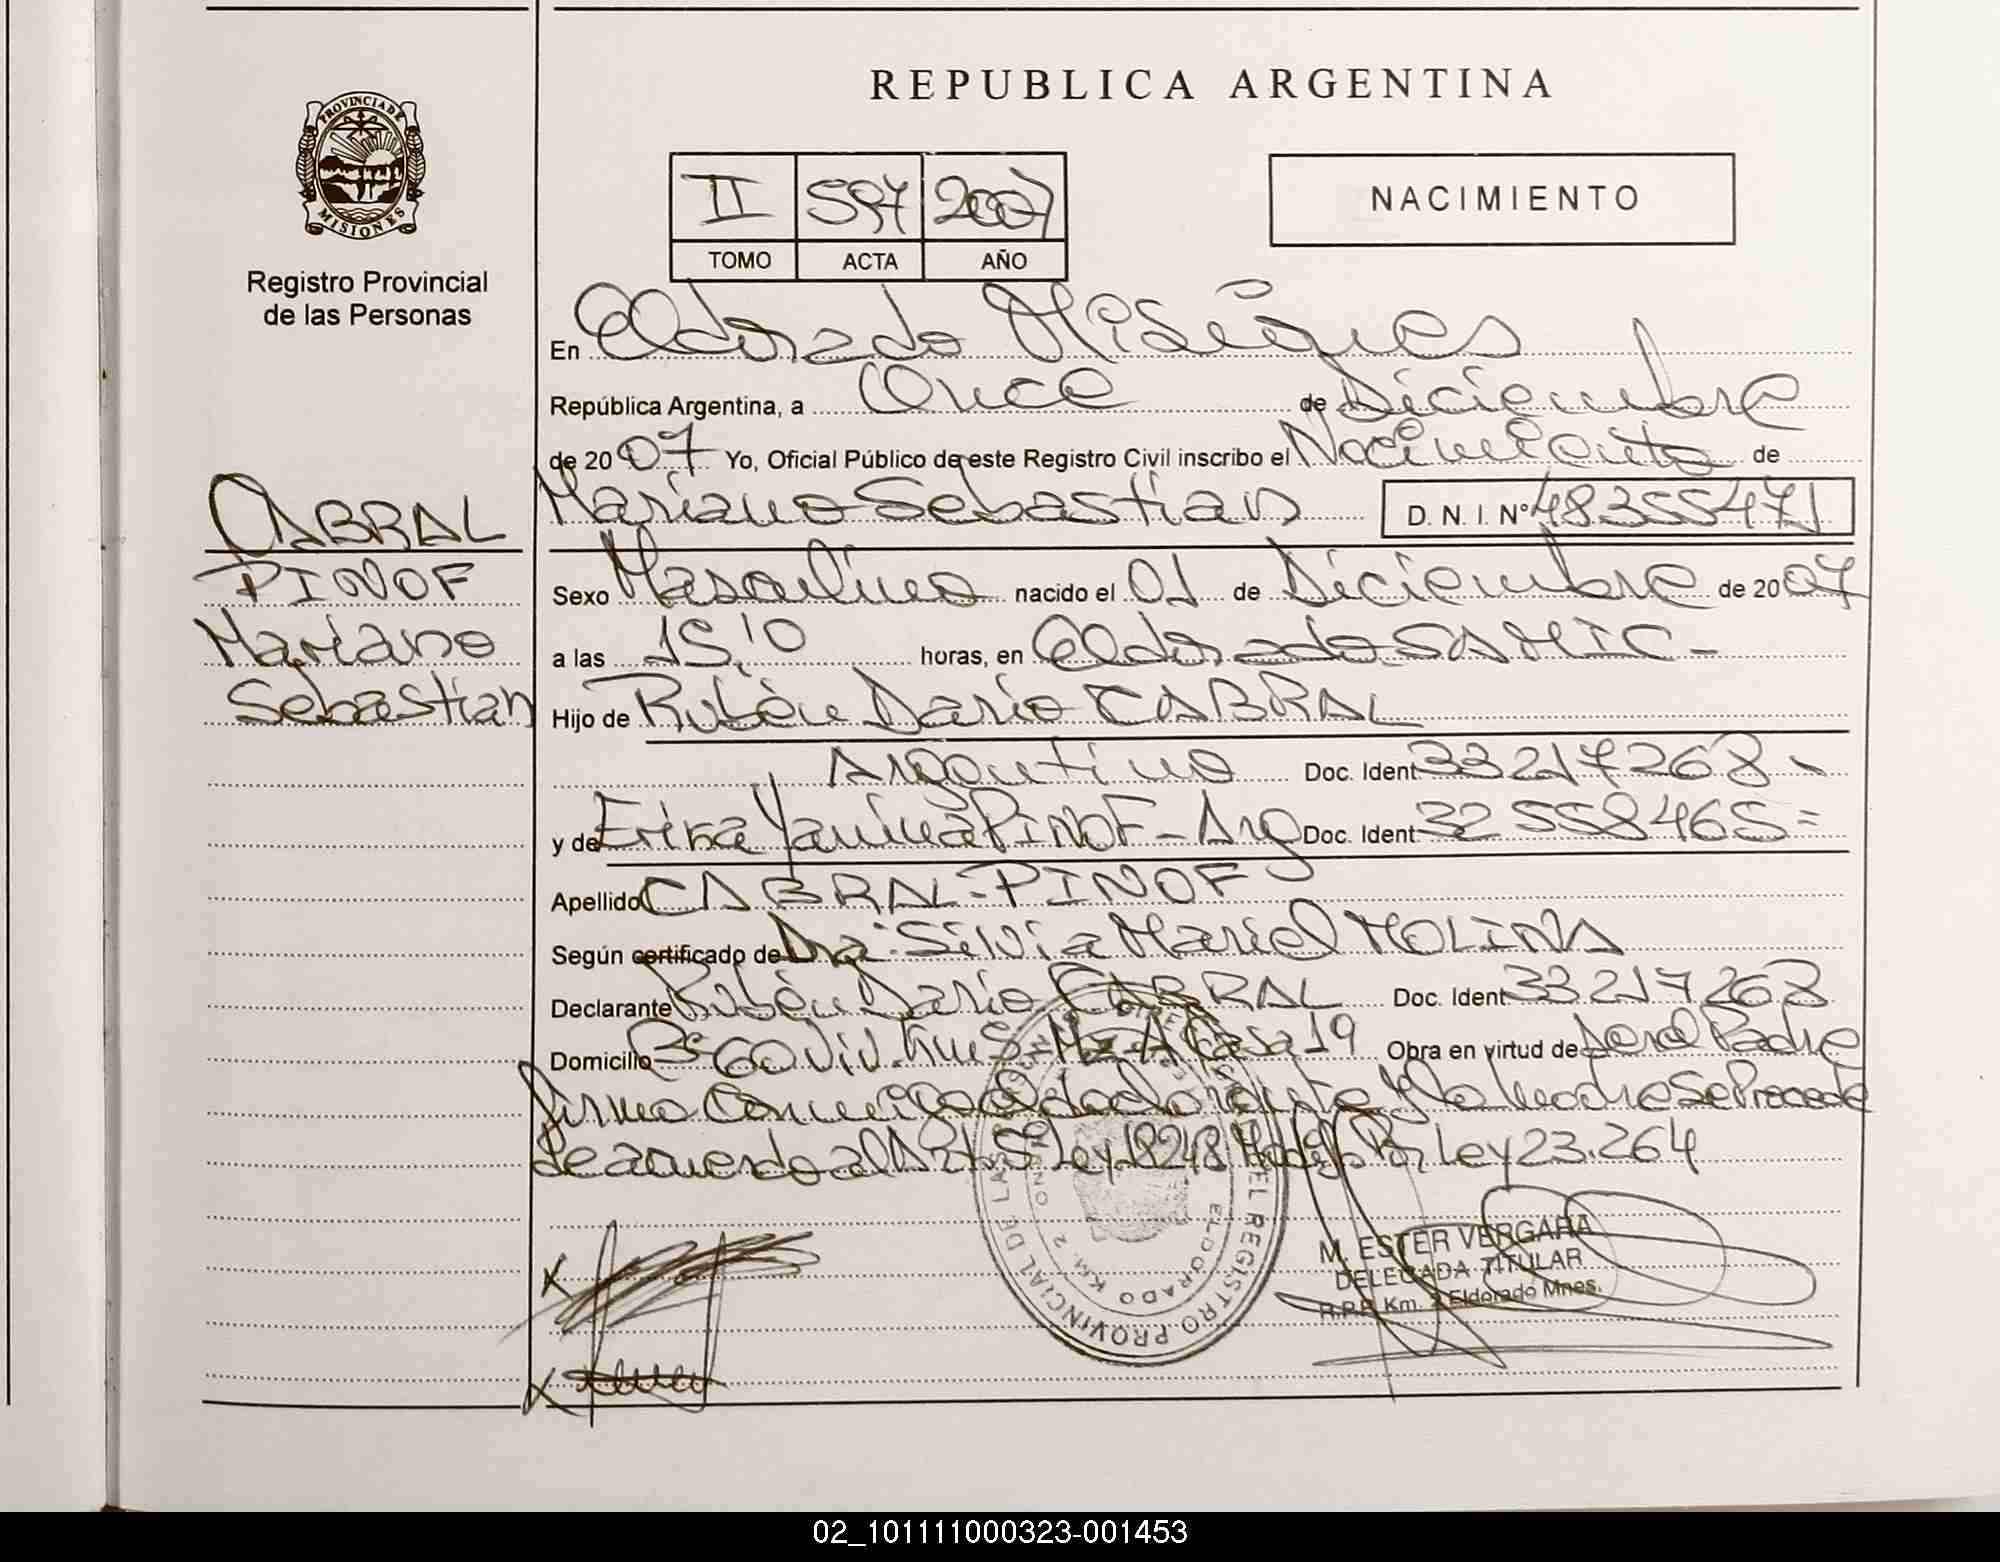 REPUBLICA ARGENTINA
PROVINCIA DE
MISIONES
Registro Provincial
de las Personas
II 597 2007
TOMO ACTA AÑO
NACIMIENTO
En Eldorado Misiones
República Argentina, a Once de Diciembre
de 2007 Yo, Oficial Público de este Registro Civil inscribo el Nacimiento de
Mariano Sebastian D. N. I. Nº 48355471
CABRAL
PINOF
Mariano
Sebastian
Sexo Masculino nacido el 01 de Diciembre de 2007
a las 15,10 horas, en Eldorado SAMIC-
Hijo de Rubén Dario CABRAL
Argentino Doc. Ident 33217268-
y de Erika Yanina PINOF-Arg Doc. Ident 32558465=
Apellido CABRAL-PINOF
Según certificado de Dra. Silvia Mariel MOLINA
Declarante Rubén Dario CABRAL Doc. Ident 33217268
Domicilio Bº 60 Viv. Km 5-Mz-A Casa 19 Obra en virtud de ser el Padre
firma Conmigo el declarante y la madre Se Procede
de acuerdo al Art. 5º Ley 18248 Modif. Por Ley 23.264
EL REGISTRO PROVINCIAL DE LAS
ELDORADO KM. 2
M. ESTER VERGARA
DELEGADA TITULAR
R.P.P. Km. 2 Eldorado Mnes.
02_101111000323-001453